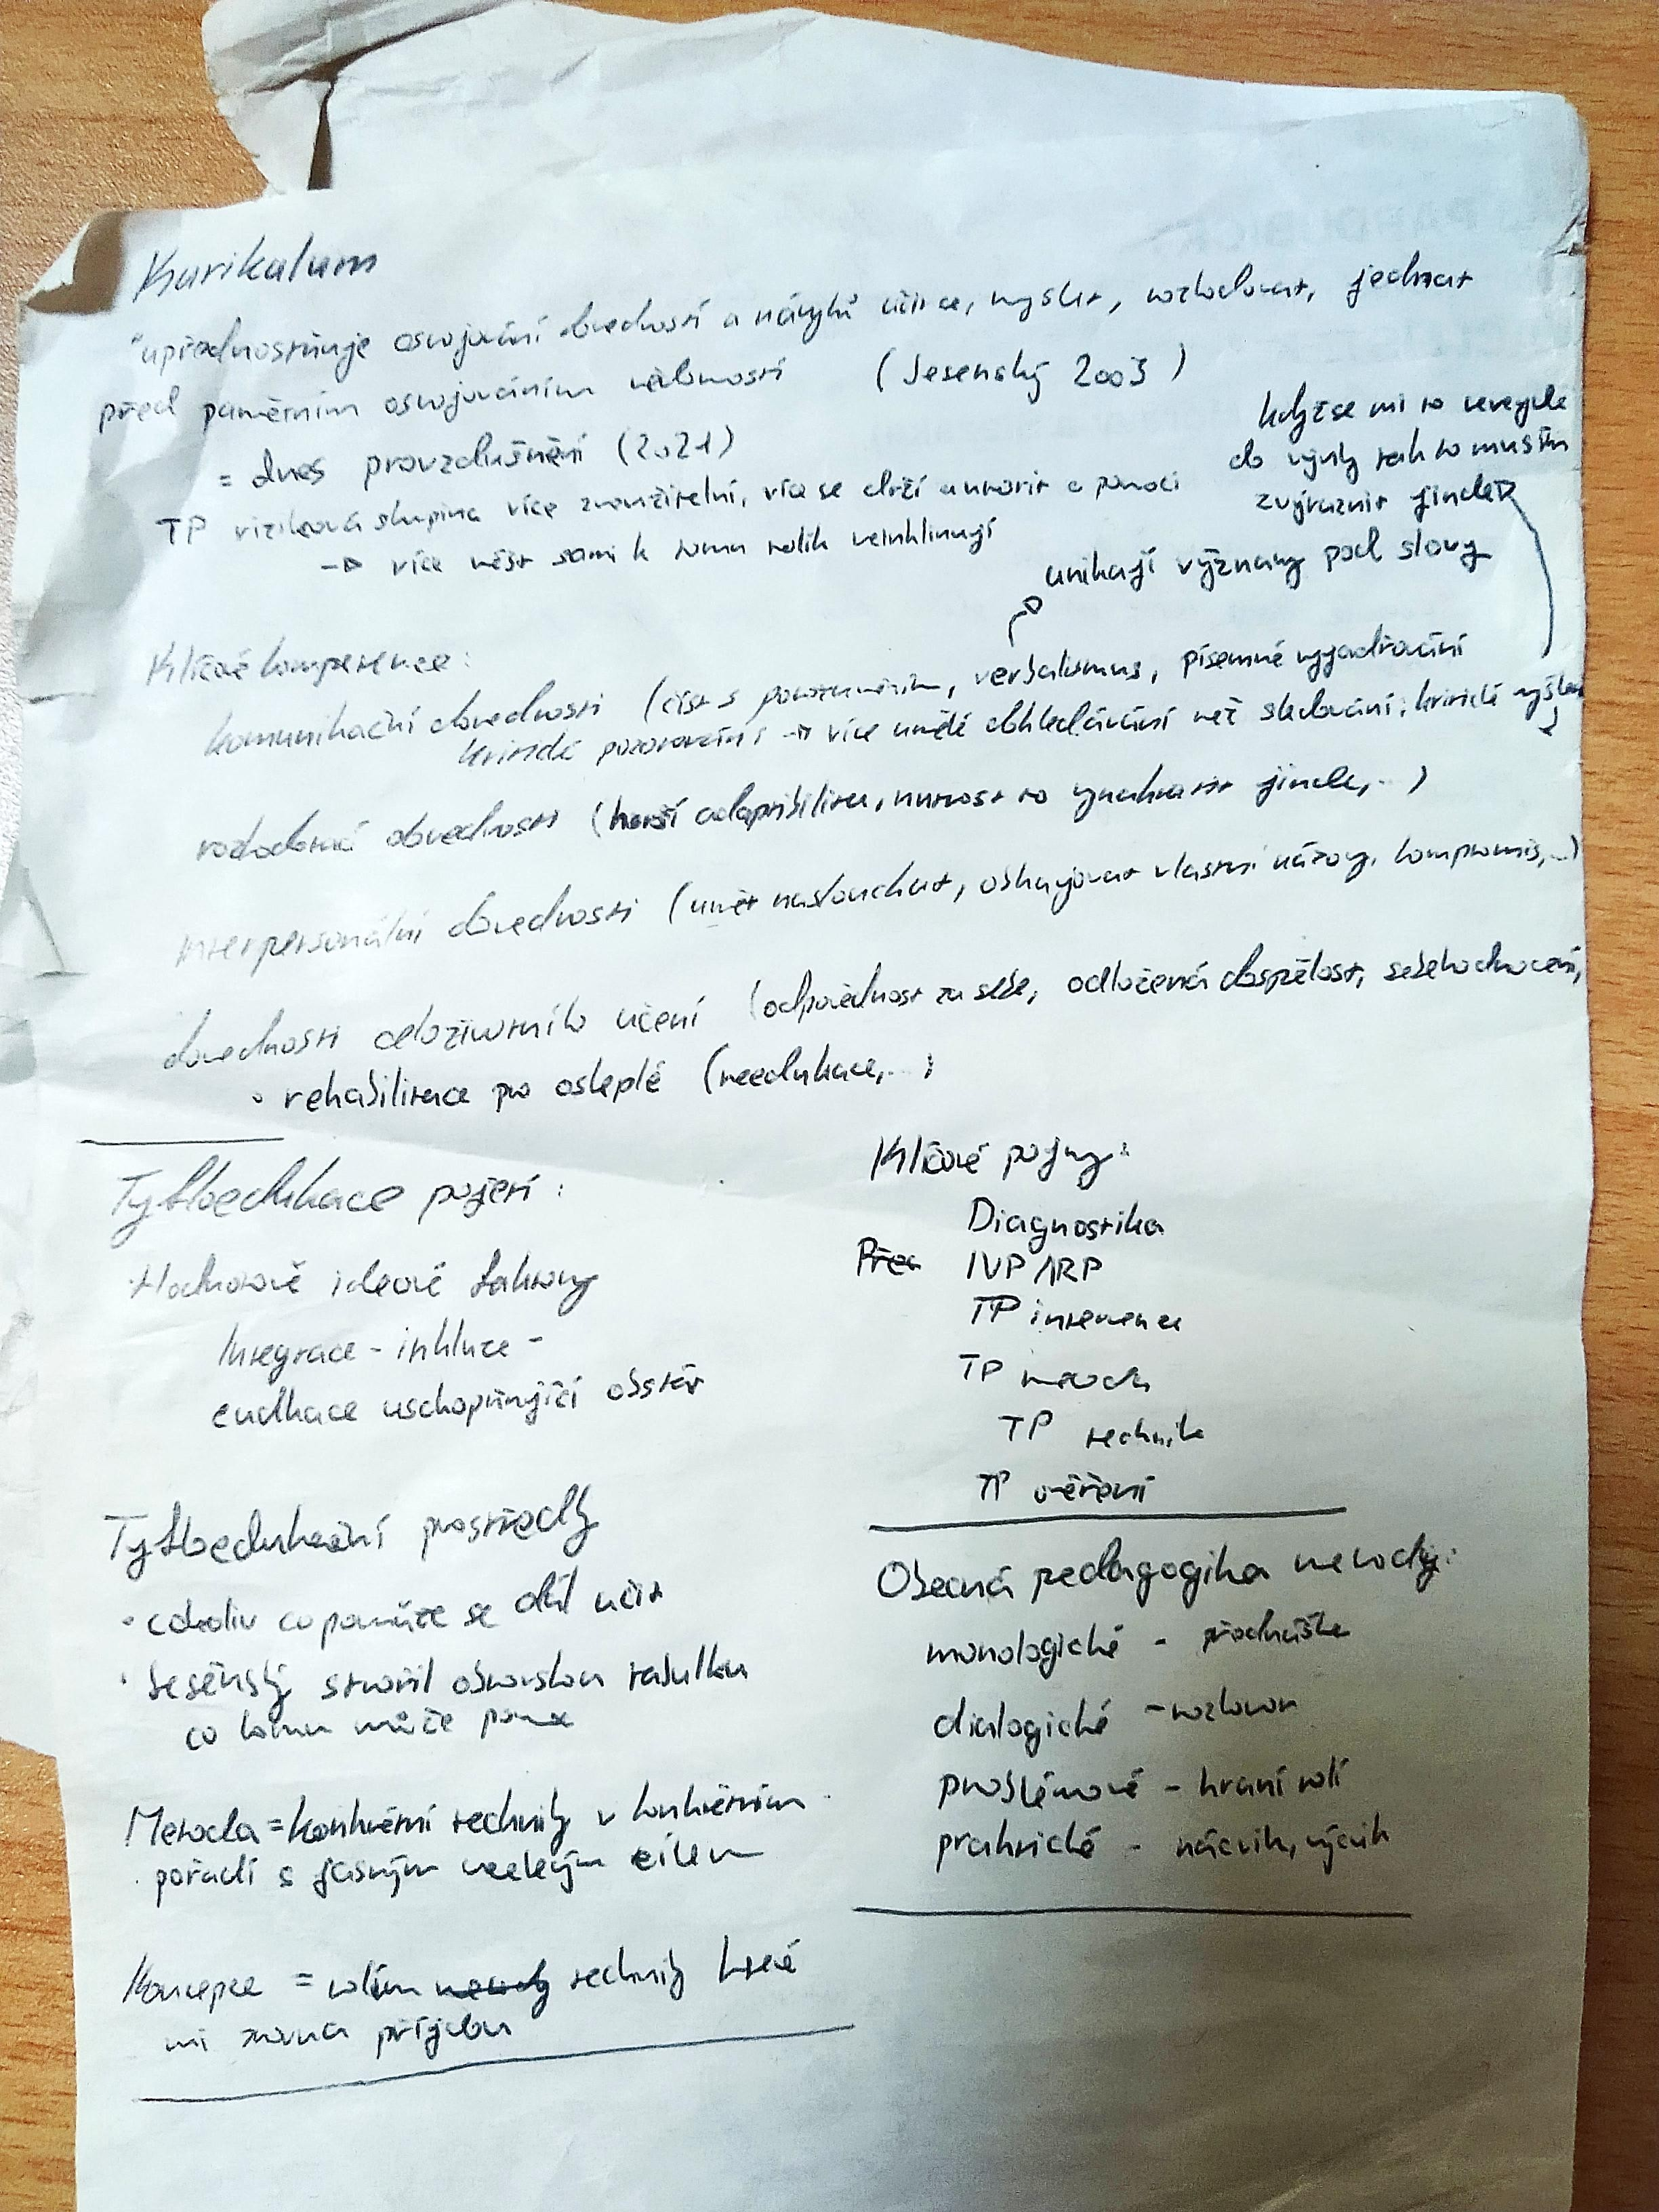 Kurikulum
"upřednostňuje osvojování dovedností a návyků učit se, myslet, rozhodovat, jednat
před pamětním osvojováním vědomostí (Jesenský 2003)
= dnes provzdušnění (2021)
TP riziková skupina více zneužitelní, více se drží autorit a pomoci
→ více vést sami k tomu tolik neinklinují
když se mi to nevejde
do výuky tak to musím
zvýraznit jinde
unikají významy pod slovy
Klíčové kompetence:
komunikační dovednosti (číst s porozuměním, verbalismus, písemné vyjadřování
kritické pozorování → více umělé ohledávání než sledování; kritické myšlení
rozhodovací dovednosti (horší adaptibilita, nutnost to vynahradit jinde,...)
interpersonální dovednosti (umět naslouchat, obhajovat vlastní názory, kompromis,...)
dovednosti celoživotního učení (odpovědnost za sebe, odložená dospělost, sebehodnocení,
• rehabilitace pro osleplé (reedukace,...)
Tyfloedukace pojetí:
Hodnotově ideové faktory
Integrace - inkluze -
edukace uschopňující
Tyfloedukační prostředky
• cokoliv co pomůže se dál učit
• Jesenský stvořil obrovskou tabulku
co komu může
Metoda = konkrétní techniky v konkrétním
pořadí s jasným cílem
Koncepce = volím metody techniky které
mi zrovna přijdou
Klíčové pojmy:
Diagnostika
Před IVP/IRP
TP intervence
TP metoda
TP technik
TP měření
Obecná pedagogika metody:
monologické - přednáška
dialogické - rozhovor
problémové - hraní rolí
praktické - nácvik, výcvik